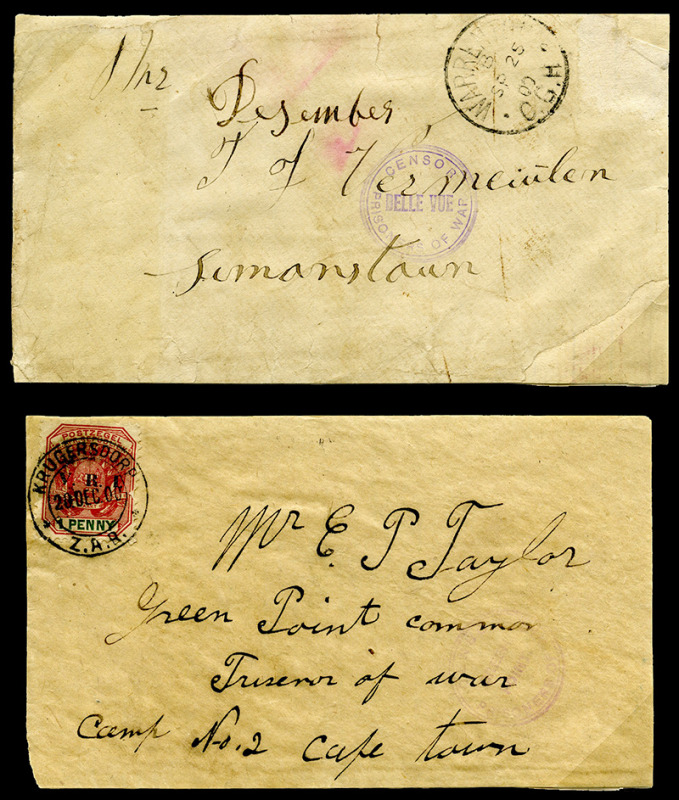 Mr
Desember
J of Vermeiulen
Simonstown
WARRENTON
B
SP 25
00
C.G.H.
CENSOR
BELLE VUE
PRISONERS OF WAR
POSTZEGEL
1 PENNY
KRUGERSDORP
V. R. I.
DEC. 00
Z.A.R.
Mr E P Taylor
Green Point common
Prisenor of war
Camp No. 2 Cape town